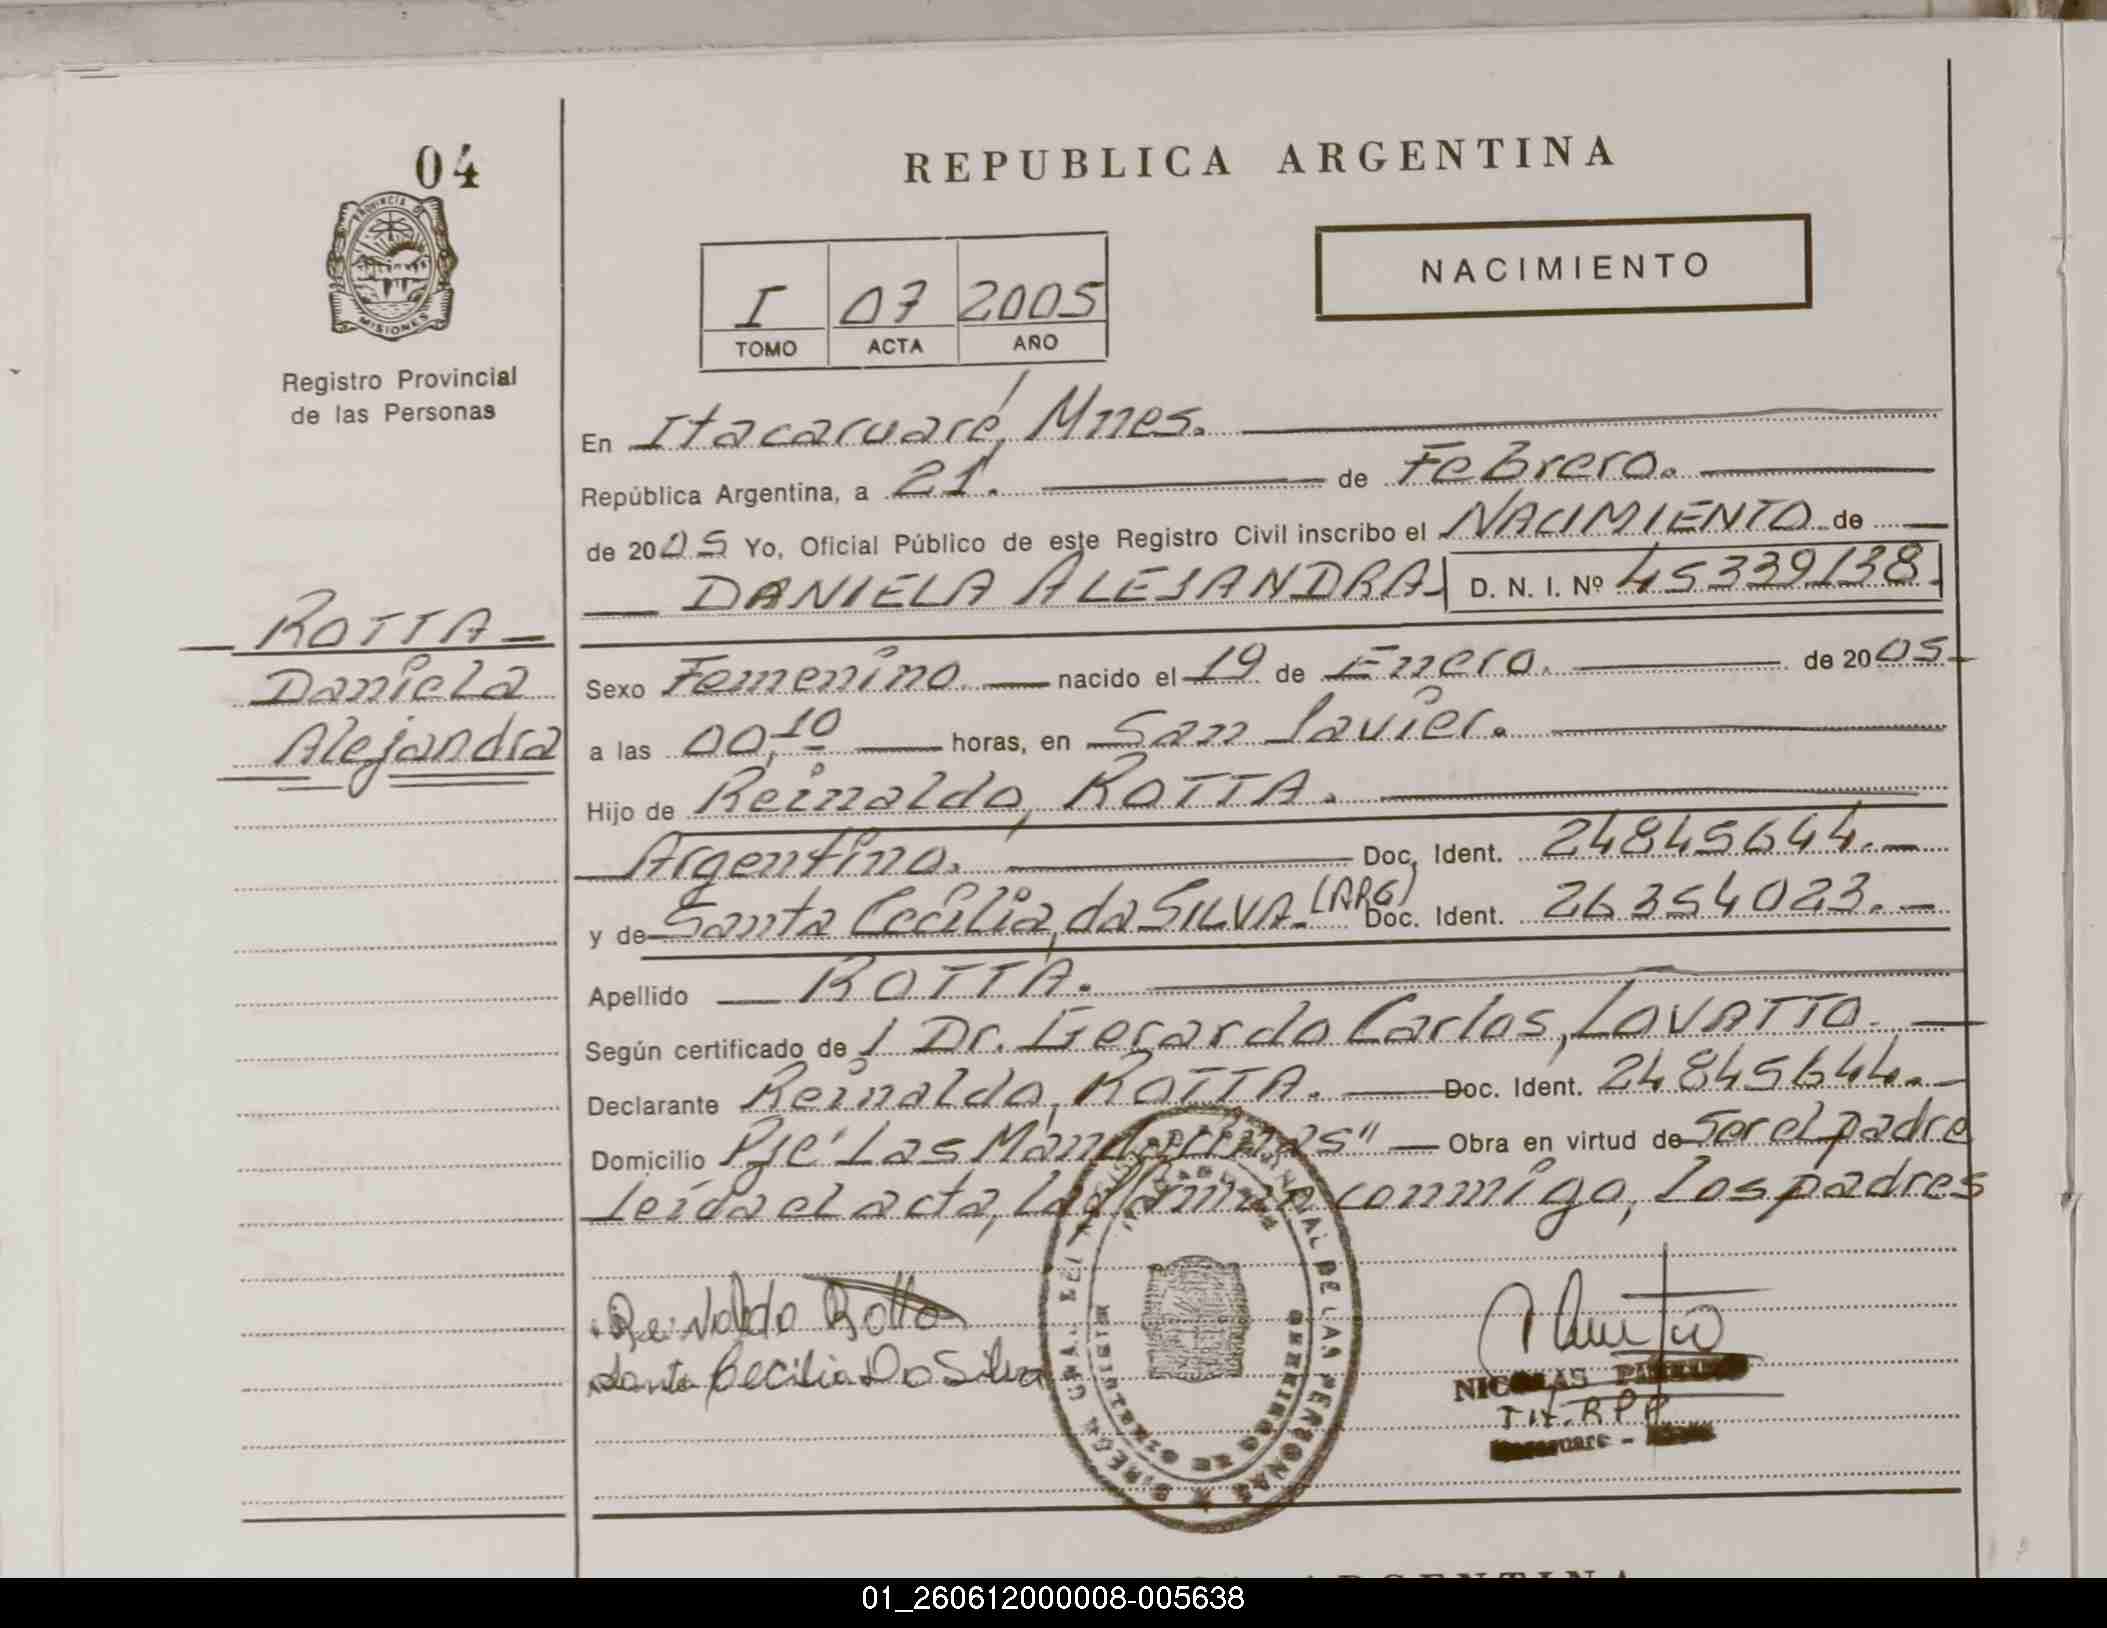 04
PROVINCIA DE
MISIONES
Registro Provincial
de las Personas
ROTTA
Daniela
Alejandra
REPUBLICA ARGENTINA
I 07 2005
TOMO ACTA AÑO
NACIMIENTO
En Itacaruaré, Mnes.
República Argentina, a 21. de Febrero.
de 2005 Yo, Oficial Público de este Registro Civil inscribo el NACIMIENTO de
DANIELA ALEJANDRA D. N. I. Nº 45339138.
Sexo Femenino nacido el 19 de Enero. de 2005
a las 00,10 horas, en San Javier.
Hijo de Reinaldo, ROTTA.
Argentino. Doc. Ident. 24845644.
y de Santa Cecilia, da SILVA. (ARG) Doc. Ident. 26354023.
Apellido ROTTA.
Según certificado de / Dr. Gerardo Carlos, LOVATTO.
Declarante Reinaldo, ROTTA. Doc. Ident. 24845644.
Domicilio Pje "Las Mandarinas" Obra en virtud de Ser el padre
leída el acta, la firman conmigo, los padres
Reinaldo Rotta
Santa Cecilia Da Silva
NICOLAS
TIT. R P P
DE LAS PERSONAS
01_260612000008-005638